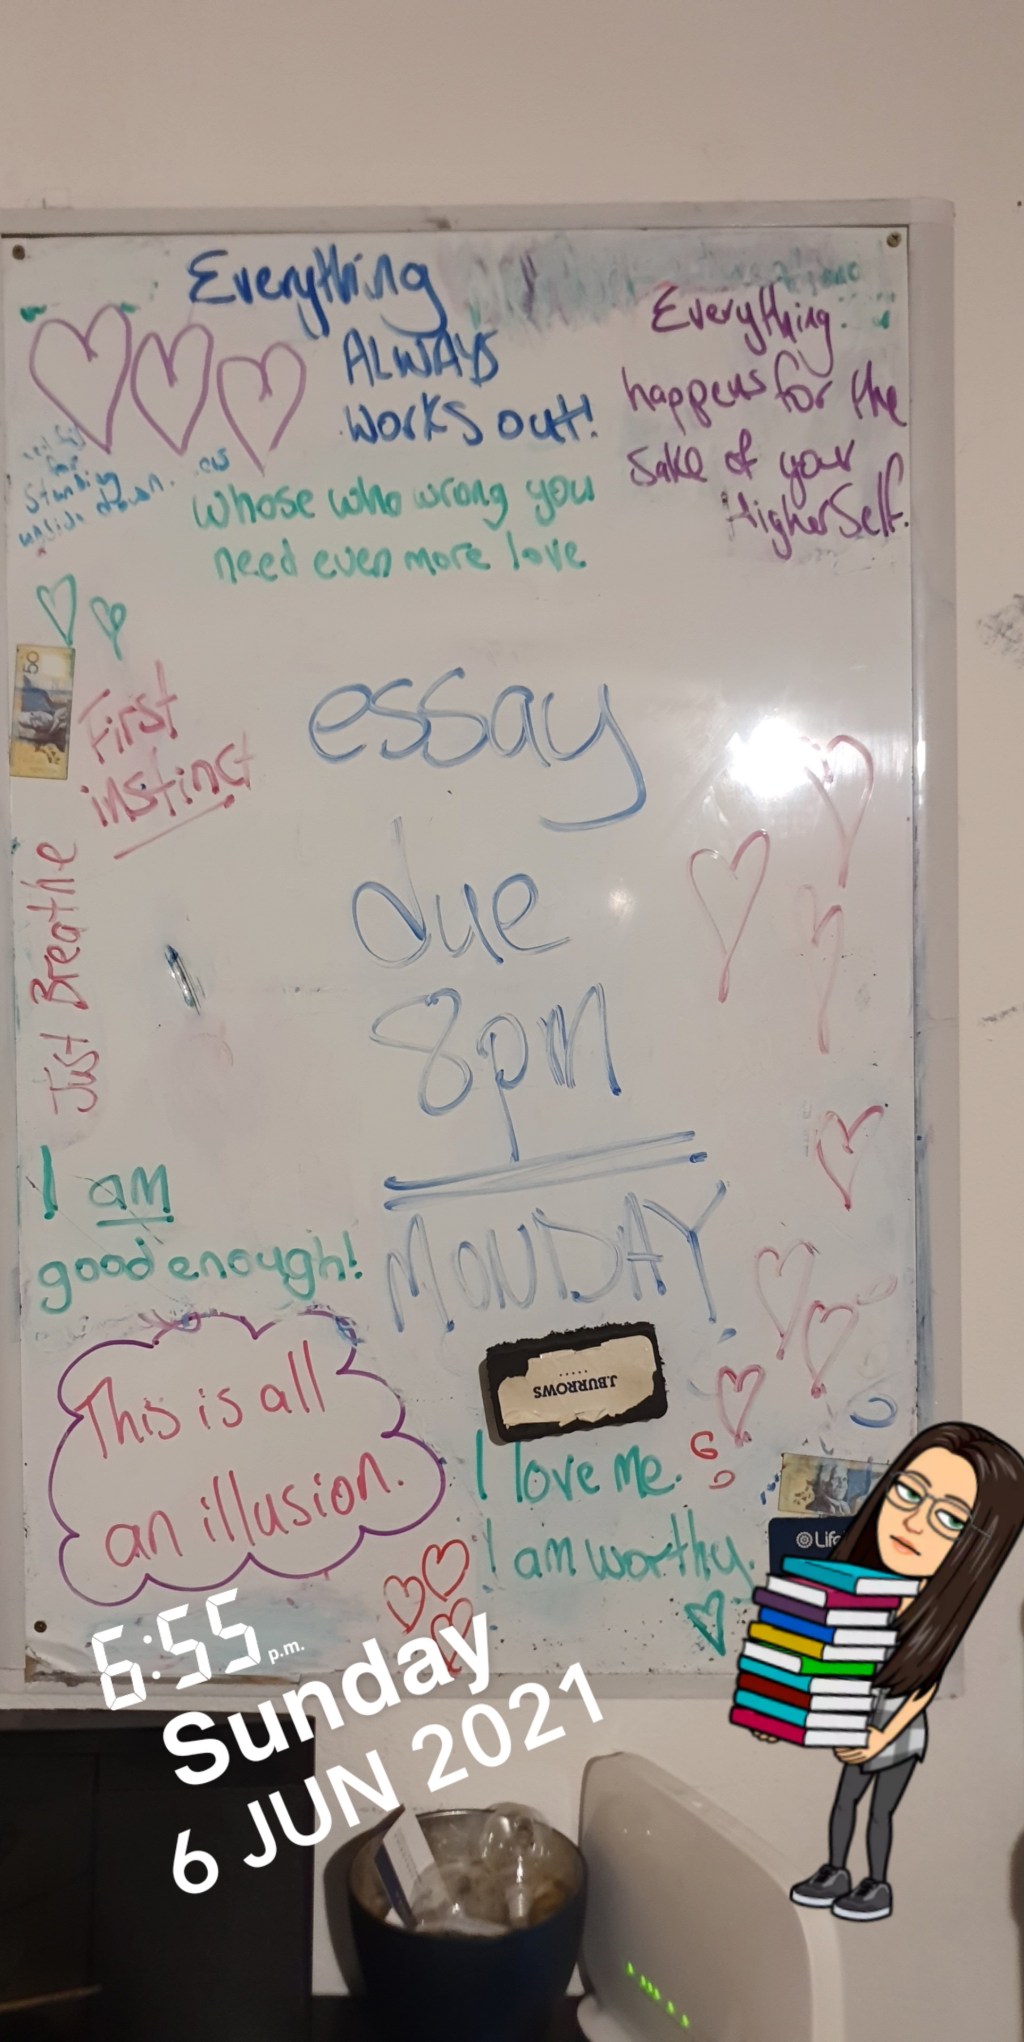 Everything
ALWAYS
WORKS out!
Everything
happens for the
sake of your
HigherSelf.
for
standing
upside down.
whose who wrong you
need even more love
50
First
instinct
essay
due
8pm
MONDAY.
Just Breathe
I am
good enough!
This is all
an illusion.
J.BURROWS
I love me.
I am worthy.
Life
6:55 p.m.
Sunday
6 JUN 2021